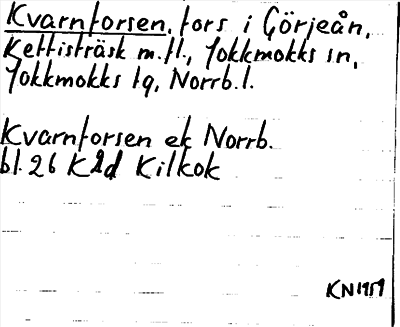 Kvarnforsen, fors i Görjeån,
Kettisträsk m.fl., Jokkmokks sn,
Jokkmokks tg, Norrb.l.
Kvarnforsen ek Norrb.
bl. 26 K2d Kilkok
KN1959